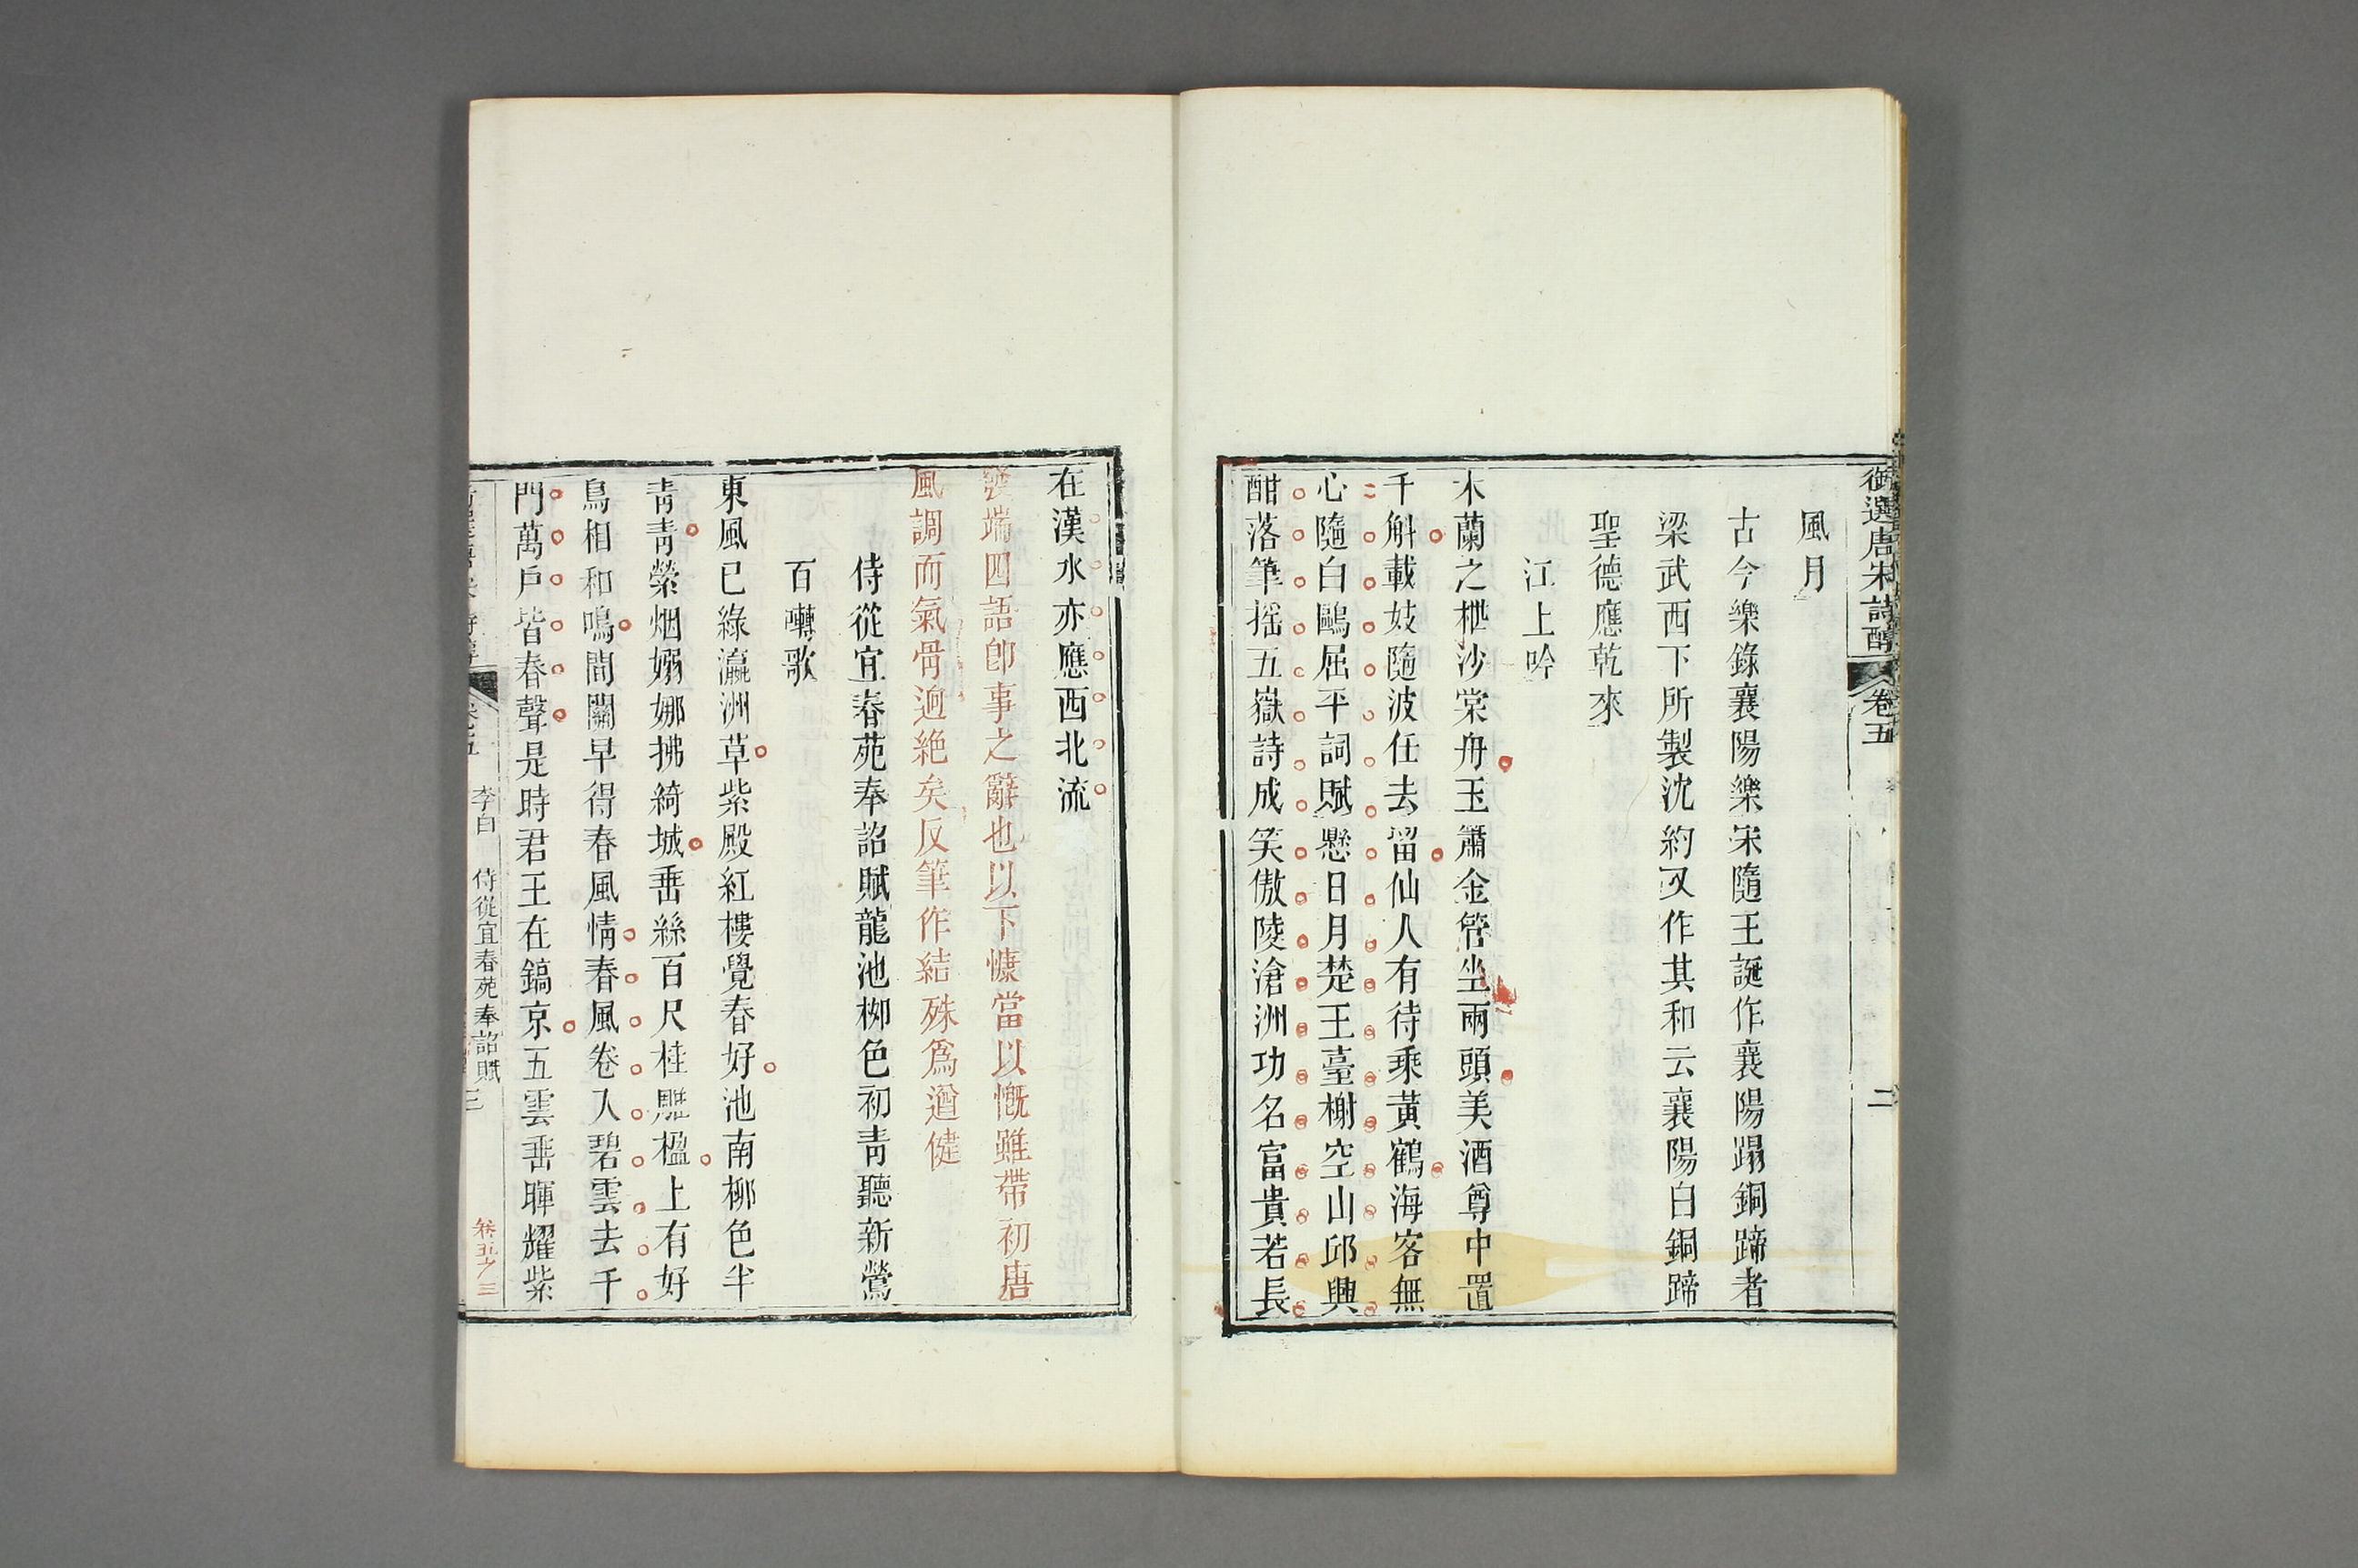 御選唐宋詩醇 卷五 二
風月
古今樂錄襄陽樂宋隨王誕作襄陽蹋銅蹄者
梁武西下所製沈約又作其和云襄陽白銅蹄
聖德應乾來
江上吟
木蘭之枻沙棠舟玉簫金管坐兩頭美酒尊中置
千斛載妓隨波任去留仙人有待乘黃鶴海客無
心隨白鷗屈平詞賦懸日月楚王臺榭空山邱興
酣落筆搖五嶽詩成笑傲陵滄洲功名富貴若長
在漢水亦應西北流
發端四語卽事之辭也以下慷當以慨雖帶初唐
風調而氣骨逈絕矣反筆作結殊爲遒健
侍從宜春苑奉詔賦龍池柳色初青聽新鶯
百囀歌
東風已綠瀛洲草紫殿紅樓覺春好池南柳色半
青青縈烟嫋娜拂綺城垂絲百尺挂雕楹上有好
鳥相和鳴間關早得春風情春風卷入碧雲去千
門萬戶皆春聲是時君王在鎬京五雲垂暉耀紫
李白 侍從宜春苑奉詔賦 三
卷五之三